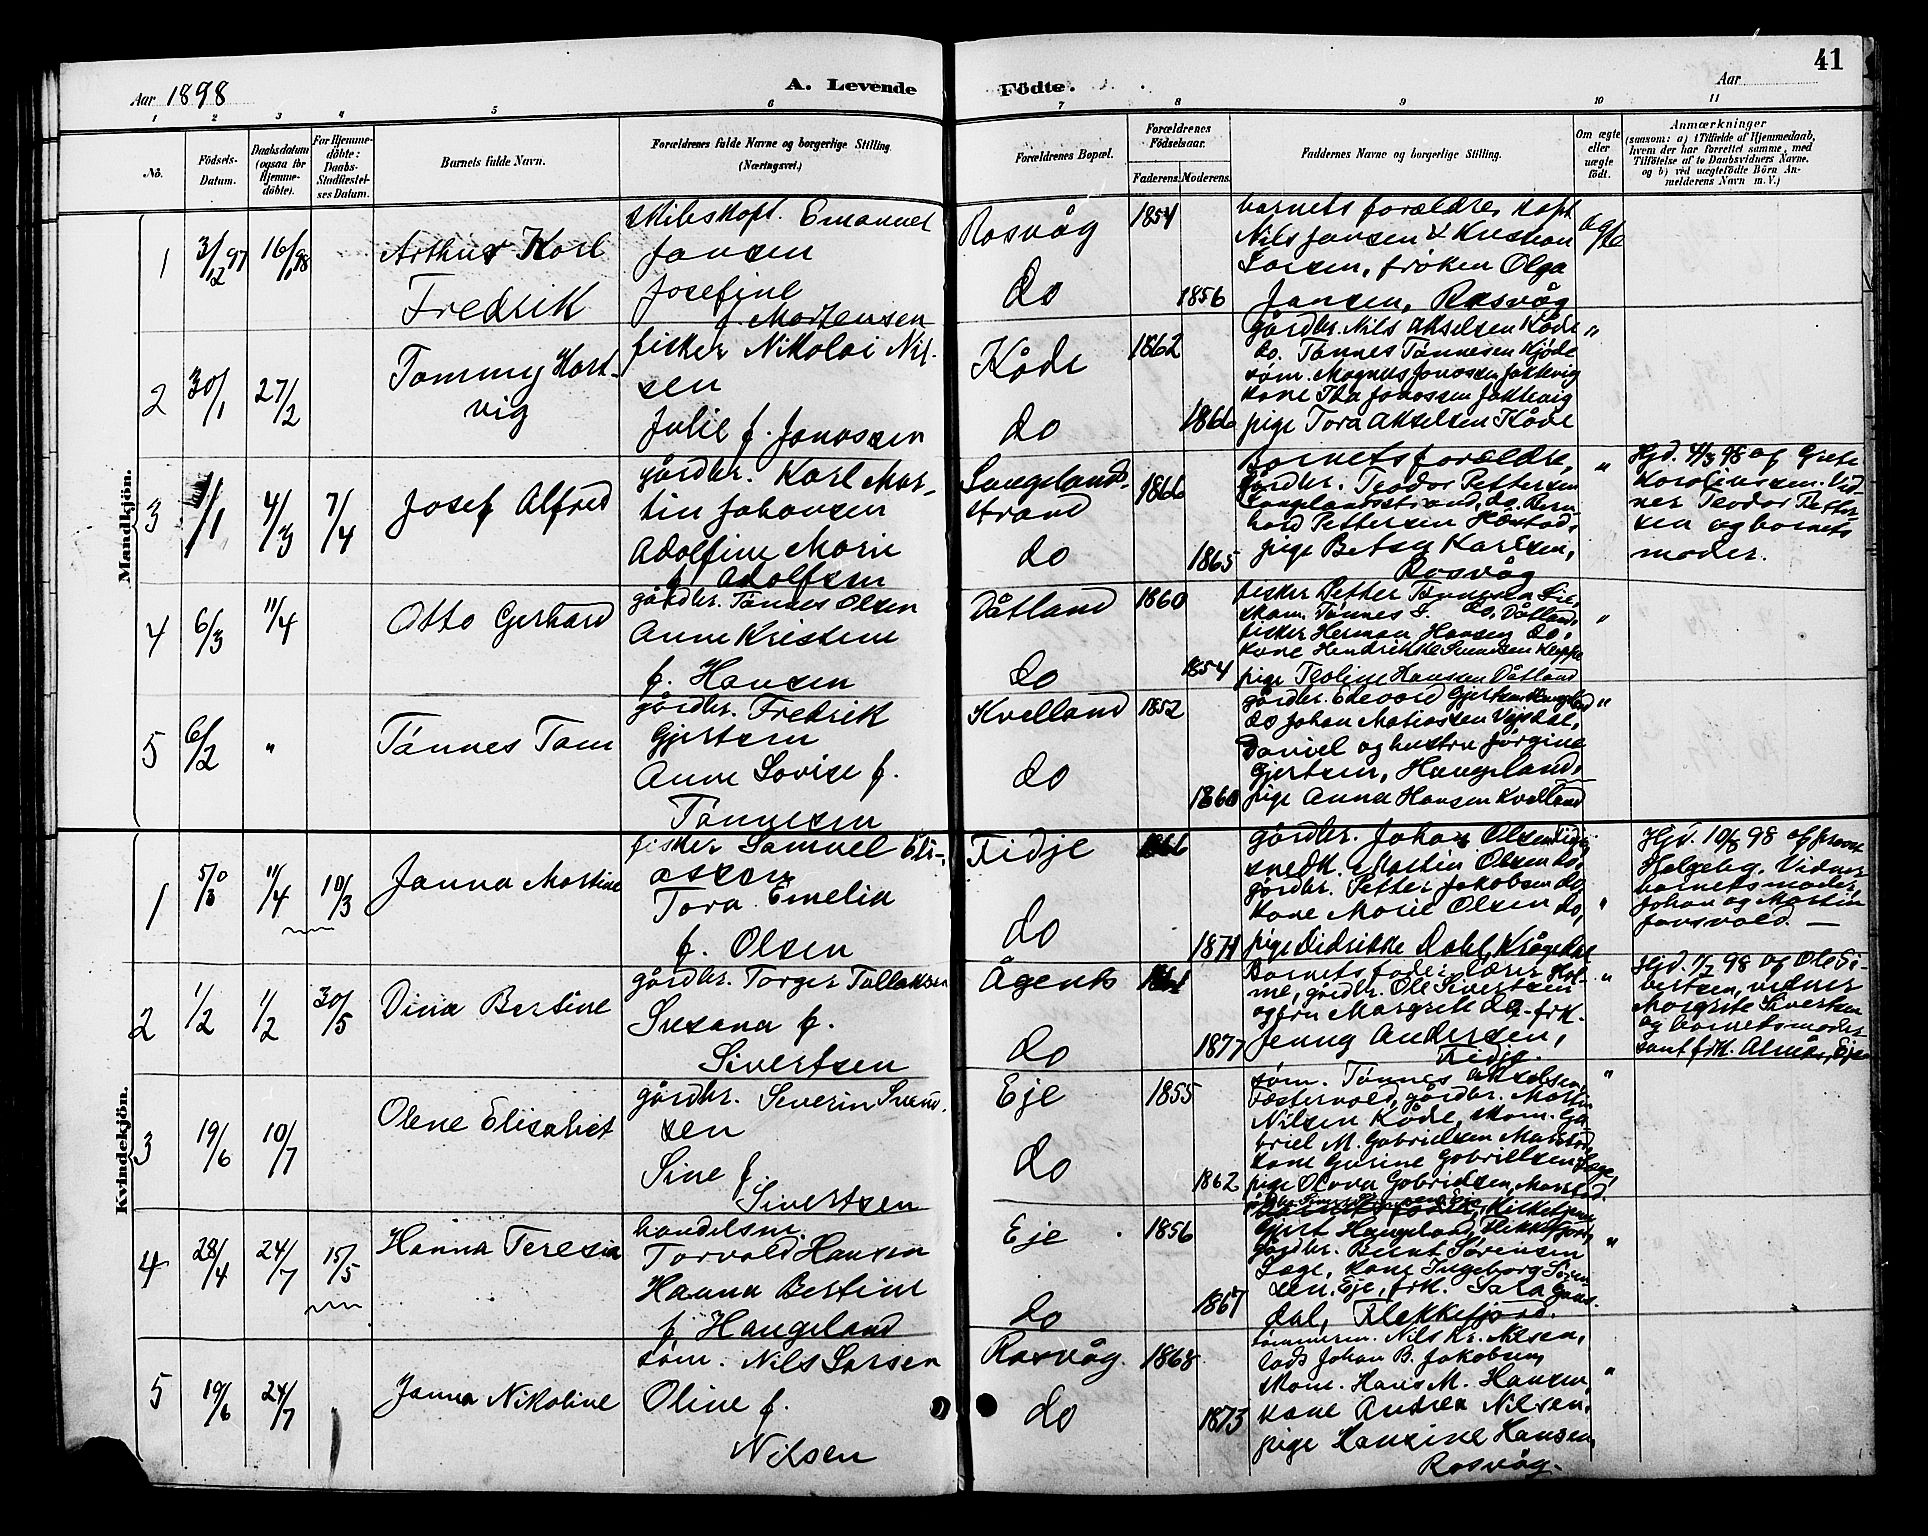 41
Aar 1898
A. Levende
Födte.
Aar
1 2 3 4 5 6 7 8 9 10 11
No.
Födsels-Datum.
Daabsdatum (ogsaa for Hjemme-döbte).
For Hjemme-döbte: Daabs-Stadfæstel-ses Datum.
Barnets fulde Navn.
Forældrenes fulde Navne og borgerlige Stilling. (Næringsvei.)
Forældrenes Bopæl.
Forældrenes Födselsaar.
Faderens. Moderens.
Faddernes Navne og borgerlige Stilling.
Om ægte eller uægte födt.
Anmærkninger
(saasom: a) i Tilfælde af Hjemmedaab, hvem der har forrettet samme, med Tilföielse af to Daabsvidners Navne. og b) ved uægtefödte Börn An-melderens Navn m. V.)
Mandkjön.
1 3/12 97 16/1 98 Arthur Karl
Fredrik
skibskapt. Emanuel
Jansen
Josefine
f. Mortensen
Rosvåg 1854
do 1856
barnets forældre, kapt.
Nils Jansen & Kristian
Larsen, frøken Olga
Jansen, Rosvåg
ægte
2 30/1 27/2 Tommy Hart-
vig
fisker Nikolai Nil-
sen
Julie f. Jonassen
Kåde 1862
do 1866
gårdbr. Nils Akselsen Kåde "
do. Tønnes Tønnesen Kjøde
søm. Magnus Jonassen
pige Tora Akselsen Kåde
3 1/1 4/3 7/4 Josef Alfred
gårdbr. Karl Mar-
tin Johansen
Adolfine Marie
f. Adolfsen
Langeland-
strand 1866
do 1865
Barnets forældre,
gårdbr. Teodor Pettersen
Langelandsstrand, do. Bern-
hard Pettersen
pige Betsy Karlsen,
Rosvåg
"
Hjd. 4/3 98 af Grete
Karoliussen. Vid-
ner Teodor Petter-
sen og barnets
moder.
4 6/3 11/4 Otto Gerhard
gårdbr. Tønnes Olsen
Anne Kristine
f. Hansen
Dåtland 1860
do 1854
fisker Petter Tønnesen
skom. Tønnes T. do, Dåtland,
fisker Herman Hansen do,
kone Hendrikke
pige Teoline Hansen Dåtland
"
5 6/2 " Tønnes Tom
gårdbr. Fredrik
Gjertsen
Anne Lovise f.
Tønnesen
Kvelland 1852
do 1860
gårdbr. Edevard Gjertsen "
do Johan Matiassen
Daniel og hustru Jørgine
Gjertsen, Haugeland,
pige Anna Hansen Kvelland
Kvindekjön.
1 5/3 11/4 10/3 Janna Martine
fisker Samuel Eli-
assen
Tora Emelia
f. Olsen
Fidje 1866
do 1871
gårdbr. Johan Olsen Fidje
snedk. Martin Olsen do,
gårdbr. Petter Jakobsen do
kone Marie Olsen do,
pige Didrikke Dahl, Krågedal
"
Hjd. 10/3 98 af
Helgeby. Vidner
barnets moder,
Johan og Martin
2 1/2 1/2 30/5 Dina Bertine
gårdbr. Torger Tallaksen
Susana f.
Sivertsen
Ågents 1861
do 1877
Barnets fader, lærer Hol-
me, gårdbr. Ole Sivertsen
og fru Margrete do. frk.
Jenny Andersen,
Fidje.
"
Hjd. 1/2 98 af Ole Si-
vertsen, vidner
Margrete Sivertsen
og barnets moder
samt frk.
3 19/6 10/7 Olene Elisabet
gårdbr. Severin Svend-
sen
Sine f.
Sivertsen
Eje 1855
do 1862
søm. Tønnes Akselsen, "
gårdbr. Martin
Nilsen Kåde, skom. Ga-
briel M. Gabrielsen
kone Gurine Gabrielsen
pige Olava Gabrielsen
4 28/4 24/7 15/5 Hanna Teresia
handelsm.
Torvald Hansen
Hanna Bertine
f. Haugeland
Eje 1856
do 1867
Gjert Haugeland, Flekkefjord,
gårdbr. Bernt Sørensen
Lage, kone Ingeborg Søren-
sen, Eje, frk. Sara
dal, Flekkefjord.
"
5 19/6 24/7 Janna Nikoline
søm. Nils Larsen
Oline f.
Nilsen
Rosvåg 1868
do 1873
tømmerm. Nils Kr. Nilsen,
lods Johan B. Jakobsen,
skom. Hans M. Hansen,
kone Andrea Nilsen,
pige Hansine Hansen,
Rosvåg.
"